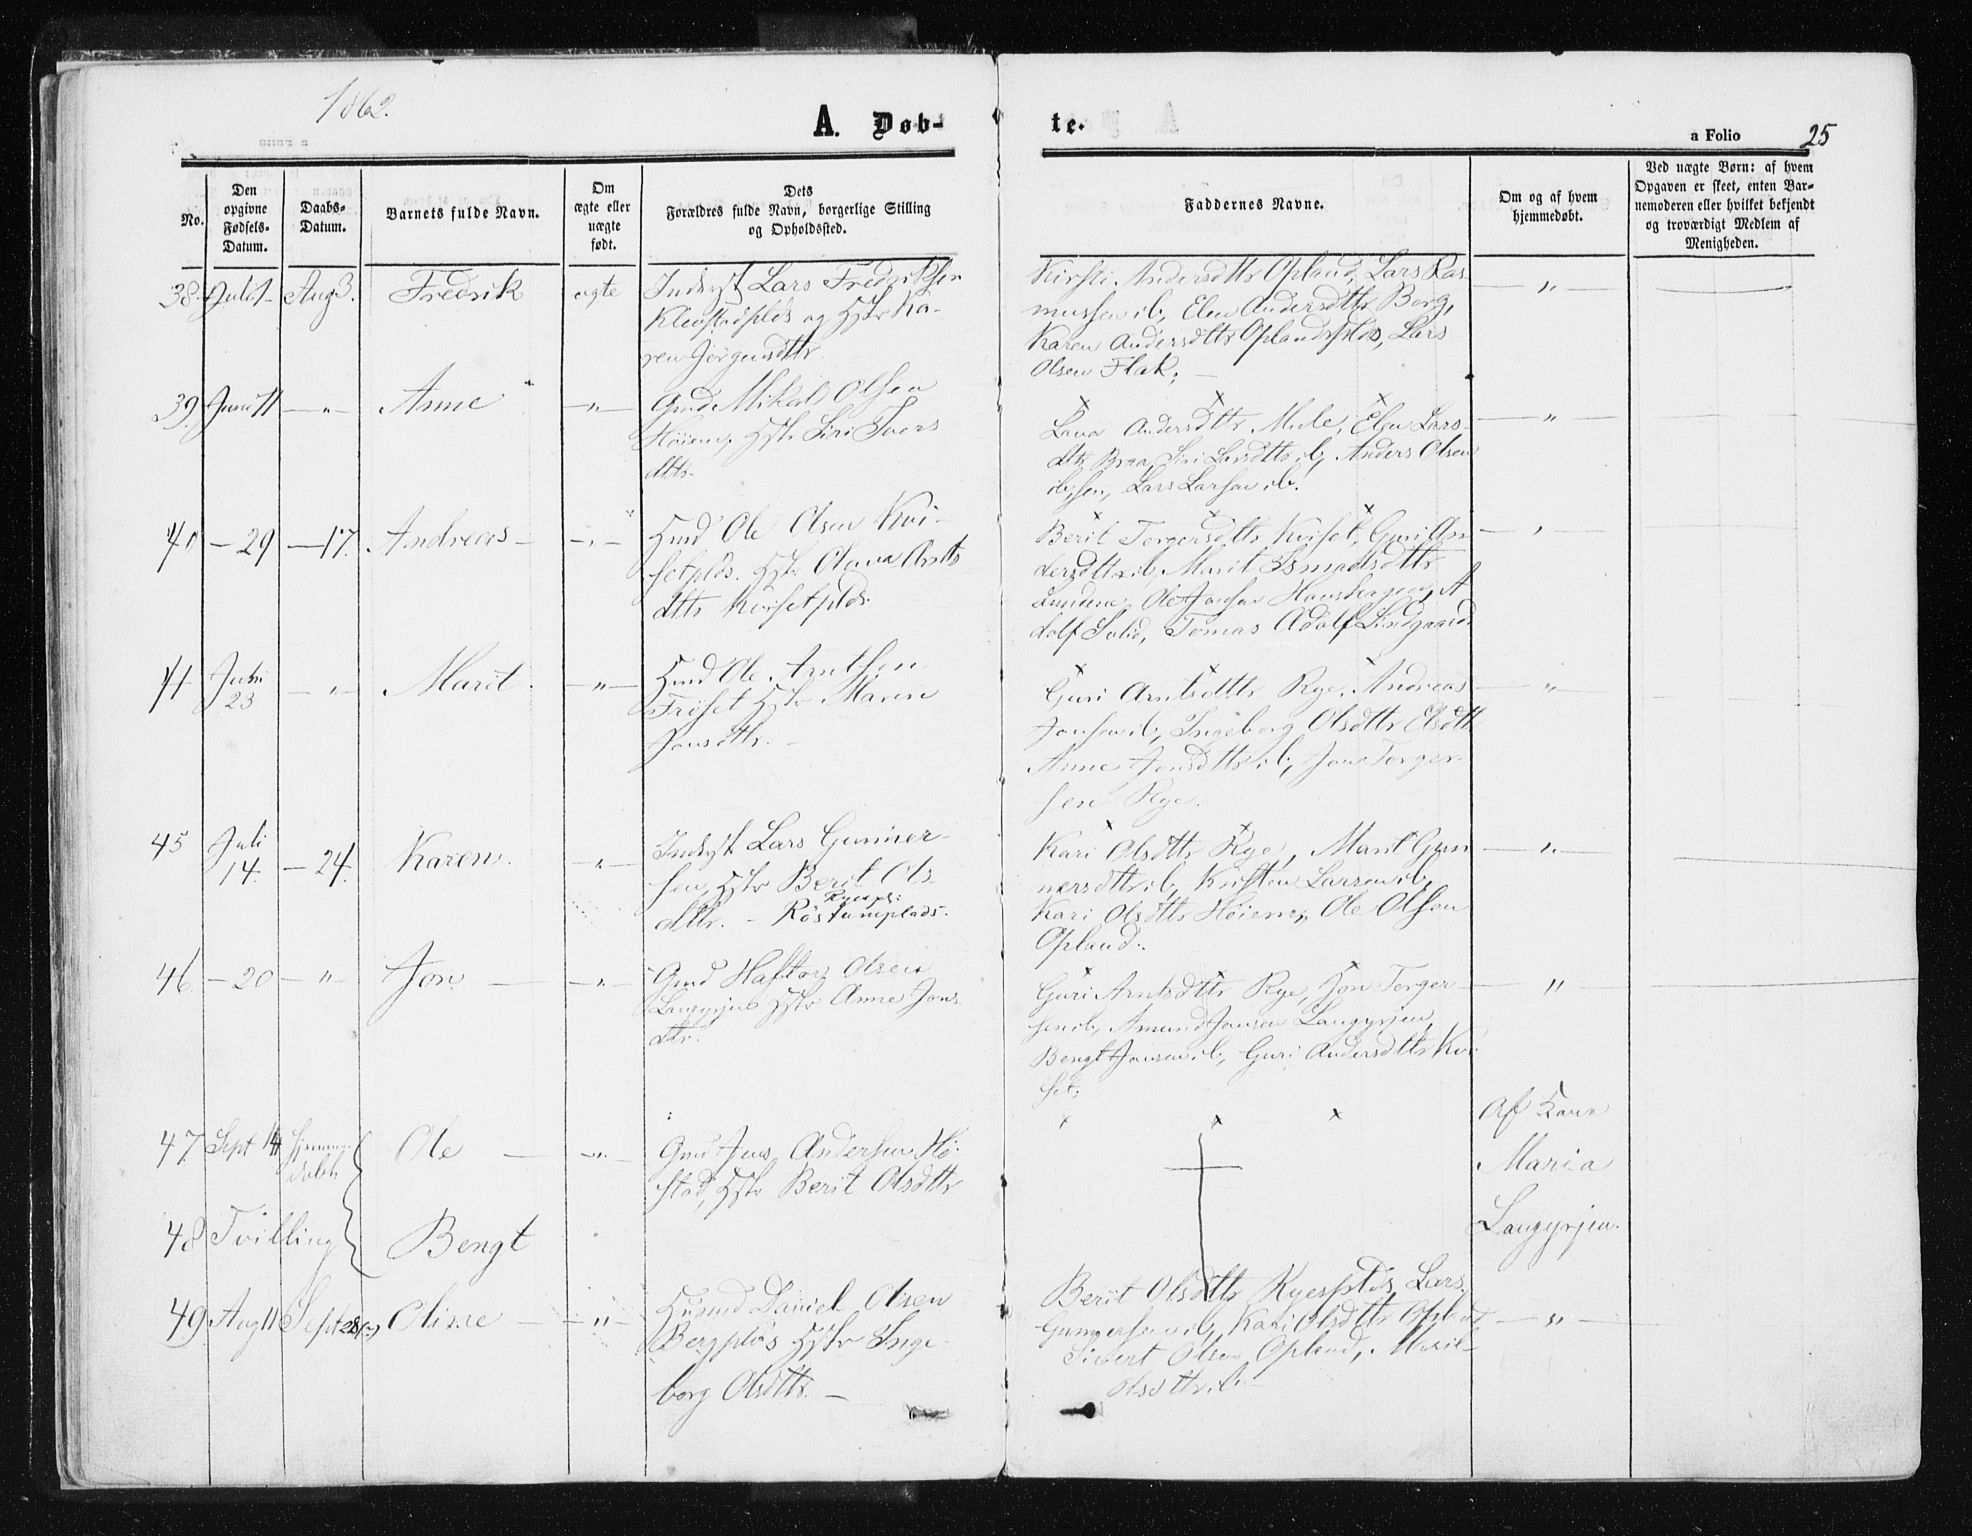 1862.
A. Døb-
te.
a Folio 25
No.
Den opgivne Fødsels-Datum.
Daabs-Datum.
Barnets fulde Navn.
Om ægte eller uægte født.
Dets Forældres fulde Navn, borgerlige Stilling og Opholdssted.
Faddernes Navne.
Om og af hvem hjemmedøbt.
Ved uægte Børn: af hvem Opgaven er skeet, enten Barnemoderen eller hvilket bekjendt og troværdigt Medlem af Menigheden.
38. Juli 1 Aug 3. Fredrik ægte Indsyst Lars Fredriksen
Klevstadplds og Hstr Ka-
ren Jörgensdttr.
Kirsti Andersdttr Opland, Lars Ras
mussen ib, Elen Andersdttr Berg,
Karen Andersdttr Oplandsplds, Lars
Olsen Flak; — " —
39. Juni 11 — " — Anne — " — Gmd Mikal Olsen
Höiem, Hstr Siri Ivers
dttr.
Lava Andersdttr Mule, Elen Lars-
dttr Braa, Siri Larsdttr ib, Anders Olsen
Lars Larsen ib. — " —
40 — 29 — 17. Andreas — " — Hmd Ole Olsen Kvi-
setplds. Hstr Olava Arnts
dttr Kvisetplds.
Berit Torgersdttr Kviset, Guri An
dersdttr ib, Marit
Ole Jonsen A
dolf Solid, Tomas Adolf Lindgaard. — " —
41 Juli 23 — " — Marit. — " — Hmd Ole Arntsen
Fröset Hstr Maren
Jonsdttr. —
Guri Arntsdttr Rye, Andreas
Jonsen ib, Ingeborg Olsdttr
Anne Jonsdttr ib, Jon Torger-
sen Rye. — " —
45 Juli 14. — 24. Karen. — " — Indsyst Lars Gunner-
sen, Hstr Berit Ols-
dttr. — Röstumplads.
Ryespl:
Kari Olsdttr Rye, Marit Gun
nersdttr ib, Kristen Larsen ib,
Kari Olsdttr Höiem, Ole Olsen
Opland. — " —
46. — 20 — " — Jon. — " — Gmd Haftor Olsen
Langyrjen Hstr Anne Jons
dttr.
Guri Arntsdttr Rye, Jon Torger
sen ib, Amund Jonsen Langyrjen,
Bengt Jonsen ib, Guri Andersdttr Kvi
set; — " —
47. Sept 14 Hjemme
döbt Ole — " — Gmd Jens Andersen Hö-
stad, Hstr Berit Olsdttr
Af Karen
Maria
Langyrjen.
48 Tvilling Bengt
49. Aug 11 Sept 28 Oline — " — Husmd Daniel Olsen
Bergplds Hstr Inge-
borg Olsdttr. —
Berit Olsdttr Ryesplds, Lars
Gunnersen ib, Kari Olsdttr Opland
Sivert Olsen Opland, Marit
Olsdttr ib — " —